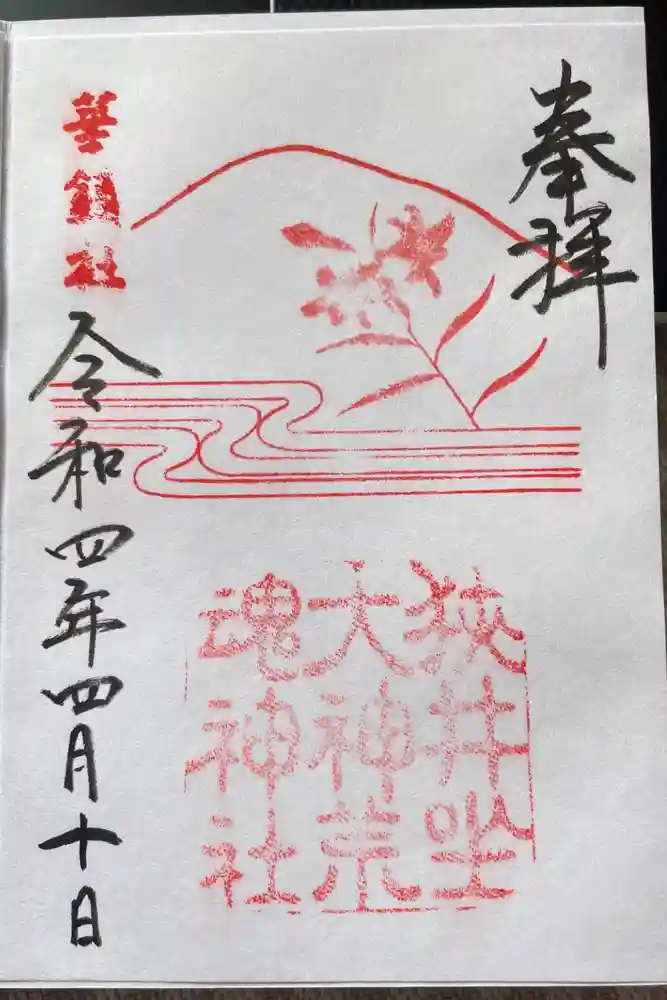 奉拝
狭井坐
大神荒
魂神社
華鎮社
令和四年四月十日